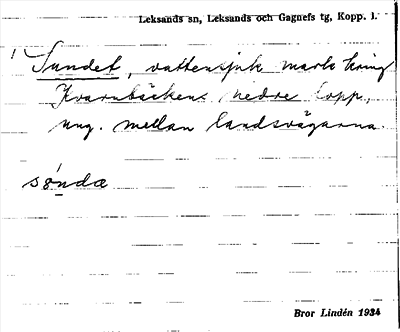 Leksands sn, Leksands och Gagnefs tg, Kopp. l.
1 Sundet, vattensjuk mark kring
Kvarnbäckens nedre lopp,
ung. mellan landsvägarna.
Bror Lindén 1934